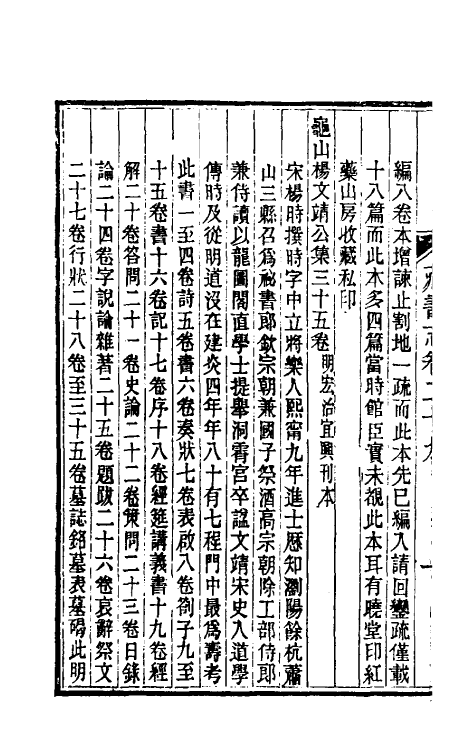 編入卷本增諫止割地一疏而此本先已編入請回鑾疏僅載
十八篇而此本多四篇當時館臣實未覩此本耳有曉堂印紅
藥山房收藏私印
龜山楊文靖公集三十五卷 明宏治宜興刊本
宋楊時撰時字中立將樂人熙甯九年進士歷知瀏陽餘杭蕭
山三縣召爲祕書郎欽宗朝兼國子祭酒高宗朝除工部侍郎
兼侍讀以龍圖閣直學士提舉洞霄宮卒諡文靖宋史入道學
傳時及從明道沒在建炎四年年八十有七程門中最爲壽考
此書一至四卷詩五卷書六卷奏狀七卷表啟八卷劄子九至
十五卷書十六卷記十七卷序十八卷經筵講義書十九卷經
解二十卷答問二十一卷史論二十二卷策問二十三卷日錄
論二十四卷字說論雜著二十五卷題跋二十六卷哀辭祭文
二十七卷行狀二十八卷至三十五卷墓誌銘墓表墓碣此明